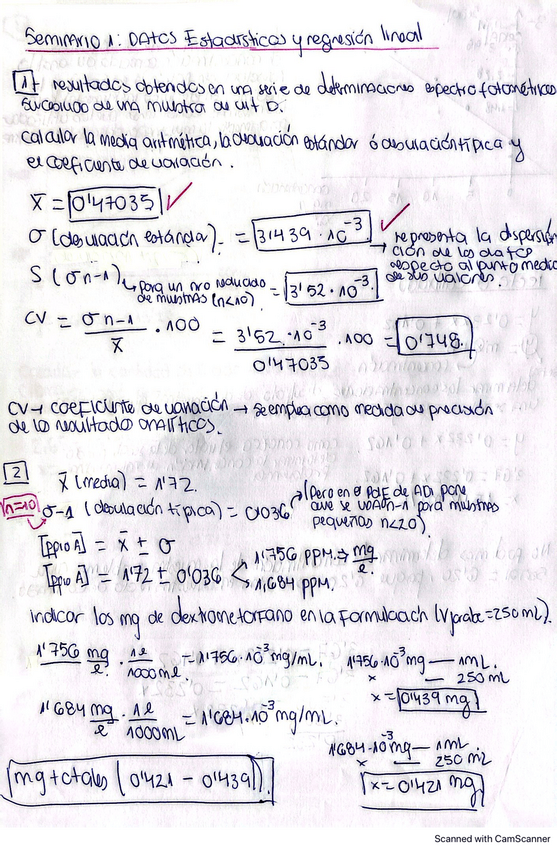 SEMINARIO 1: DATOS Estadísticos y regresión lineal
1 resultados obtenidos en una serie de determinaciones espectrofotométricas
sucesivas de una muestra de vit. D.
calcular la media aritmética, la desviación estándar ó desviación típica y
el coeficiente de variación.
X̄ = 0'47035
σ (desviación estándar). = 3'439 · 10⁻³
→ representa la dispersión
de los datos
respecto al punto medio
de sus valores.
S (σn-1) = 3'52 · 10⁻³
↳ para un nro reducido
de muestras (n<10)
CV = σn-1 / X̄ · 100 = 3'52 · 10⁻³ / 0'47035 · 100 = 0'748.
CV → coeficiente de variación → se emplea como medida de precisión
de los resultados analíticos.
2 X̄ (media) = 1'72.
n=10 σ-1 (desviación típica) = 0'036
(Pero en el PDF de ADI pone
que se usa σn-1 para muestras
pequeñas n<20)
[ppio A] = X̄ ± σ
[ppio A] = 1'72 ± 0'036 < 1'756 ppm. ⇒ mg/l.
1,684 ppm.
indicar los mg de dextrometorfano en la formulaach (Vjarabe = 250 mL).
1'756 mg/l. · 1l/1000 ml. = 1'756 · 10⁻³ mg/mL.
1'756 · 10⁻³ mg — 1mL.
x — 250 mL
x = 0'439 mg
1'684 mg/l. · 1l/1000 mL = 1'684 · 10⁻³ mg/mL.
1'684 · 10⁻³ mg — 1mL.
x — 250 mL
x = 0'421 mg
mg totales (0'421 - 0'439)
Scanned with CamScanner